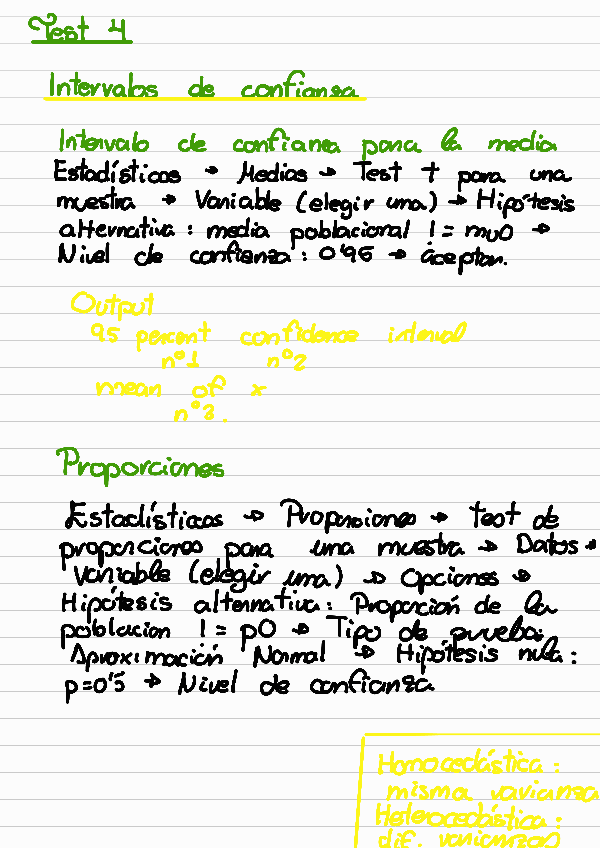 Test 4
Intervalos de confianza
Intervalo de confianza para la media
Estadísticos → Medias → Test t para una
muestra → Variable (elegir una) → Hipótesis
alternativa: media poblacional != mu0 →
Nivel de confianza: 0'95 → aceptar.
Output
95 percent confidence interval
nº1 nº2
mean of x
nº3.
Proporciones
Estadísticos → Proporciones → Test de
proporciones para una muestra → Datos →
Variable (elegir una) → Opciones →
Hipótesis alternativa: Proporción de la
poblacion != p0 → Tipo de prueba:
Aproximación Normal → Hipótesis nula:
p=0'5 → Nivel de confianza
Homocedástica:
misma varianza
Heterocedástica:
dif. varianzas